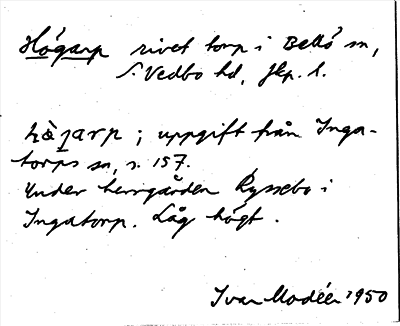 Högarp rivet torp i Bellö sn,
S. Vedbo hd, Jkp. l.
hò̱garp ; uppgift från Inga-
torps sn, s. 157.
Under herrgården Ryssebo i
Ingatorp. Låg högt.
Ivar Modéer 1950